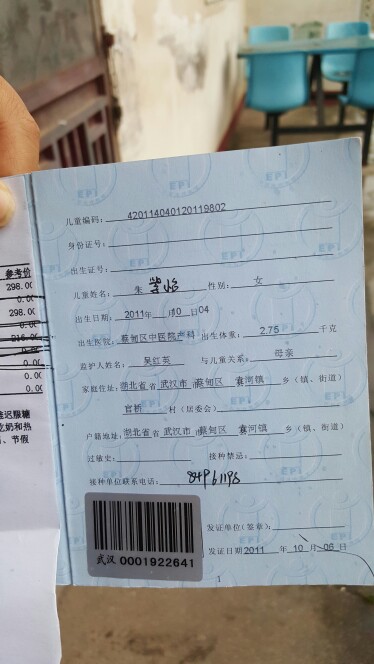 儿童编码：420114040120119802
身份证号：
出生证号：
儿童姓名：朱紫怡 性别：女
出生日期：2011年10月04
出生医院：蔡甸区中医院产科 出生体重：2.75 千克
监护人姓名：吴红英 与儿童关系：母亲
家庭住址：湖北省省武汉市蔡甸区 奓河镇 乡（镇、街道）
官桥 村（居委会）
户籍地址：湖北省省武汉市蔡甸区 奓河镇 乡（镇、街道）
过敏史： 接种禁忌：
接种单位联系电话：84961198
发证单位（签章）：
发证日期2011年10月06日
武汉 0001922641
1
参考价
298.00
0.00
298.00
0.00
216.00
0.00
0.00
0.00
0.00
难迟服糖
吃奶和热
节假